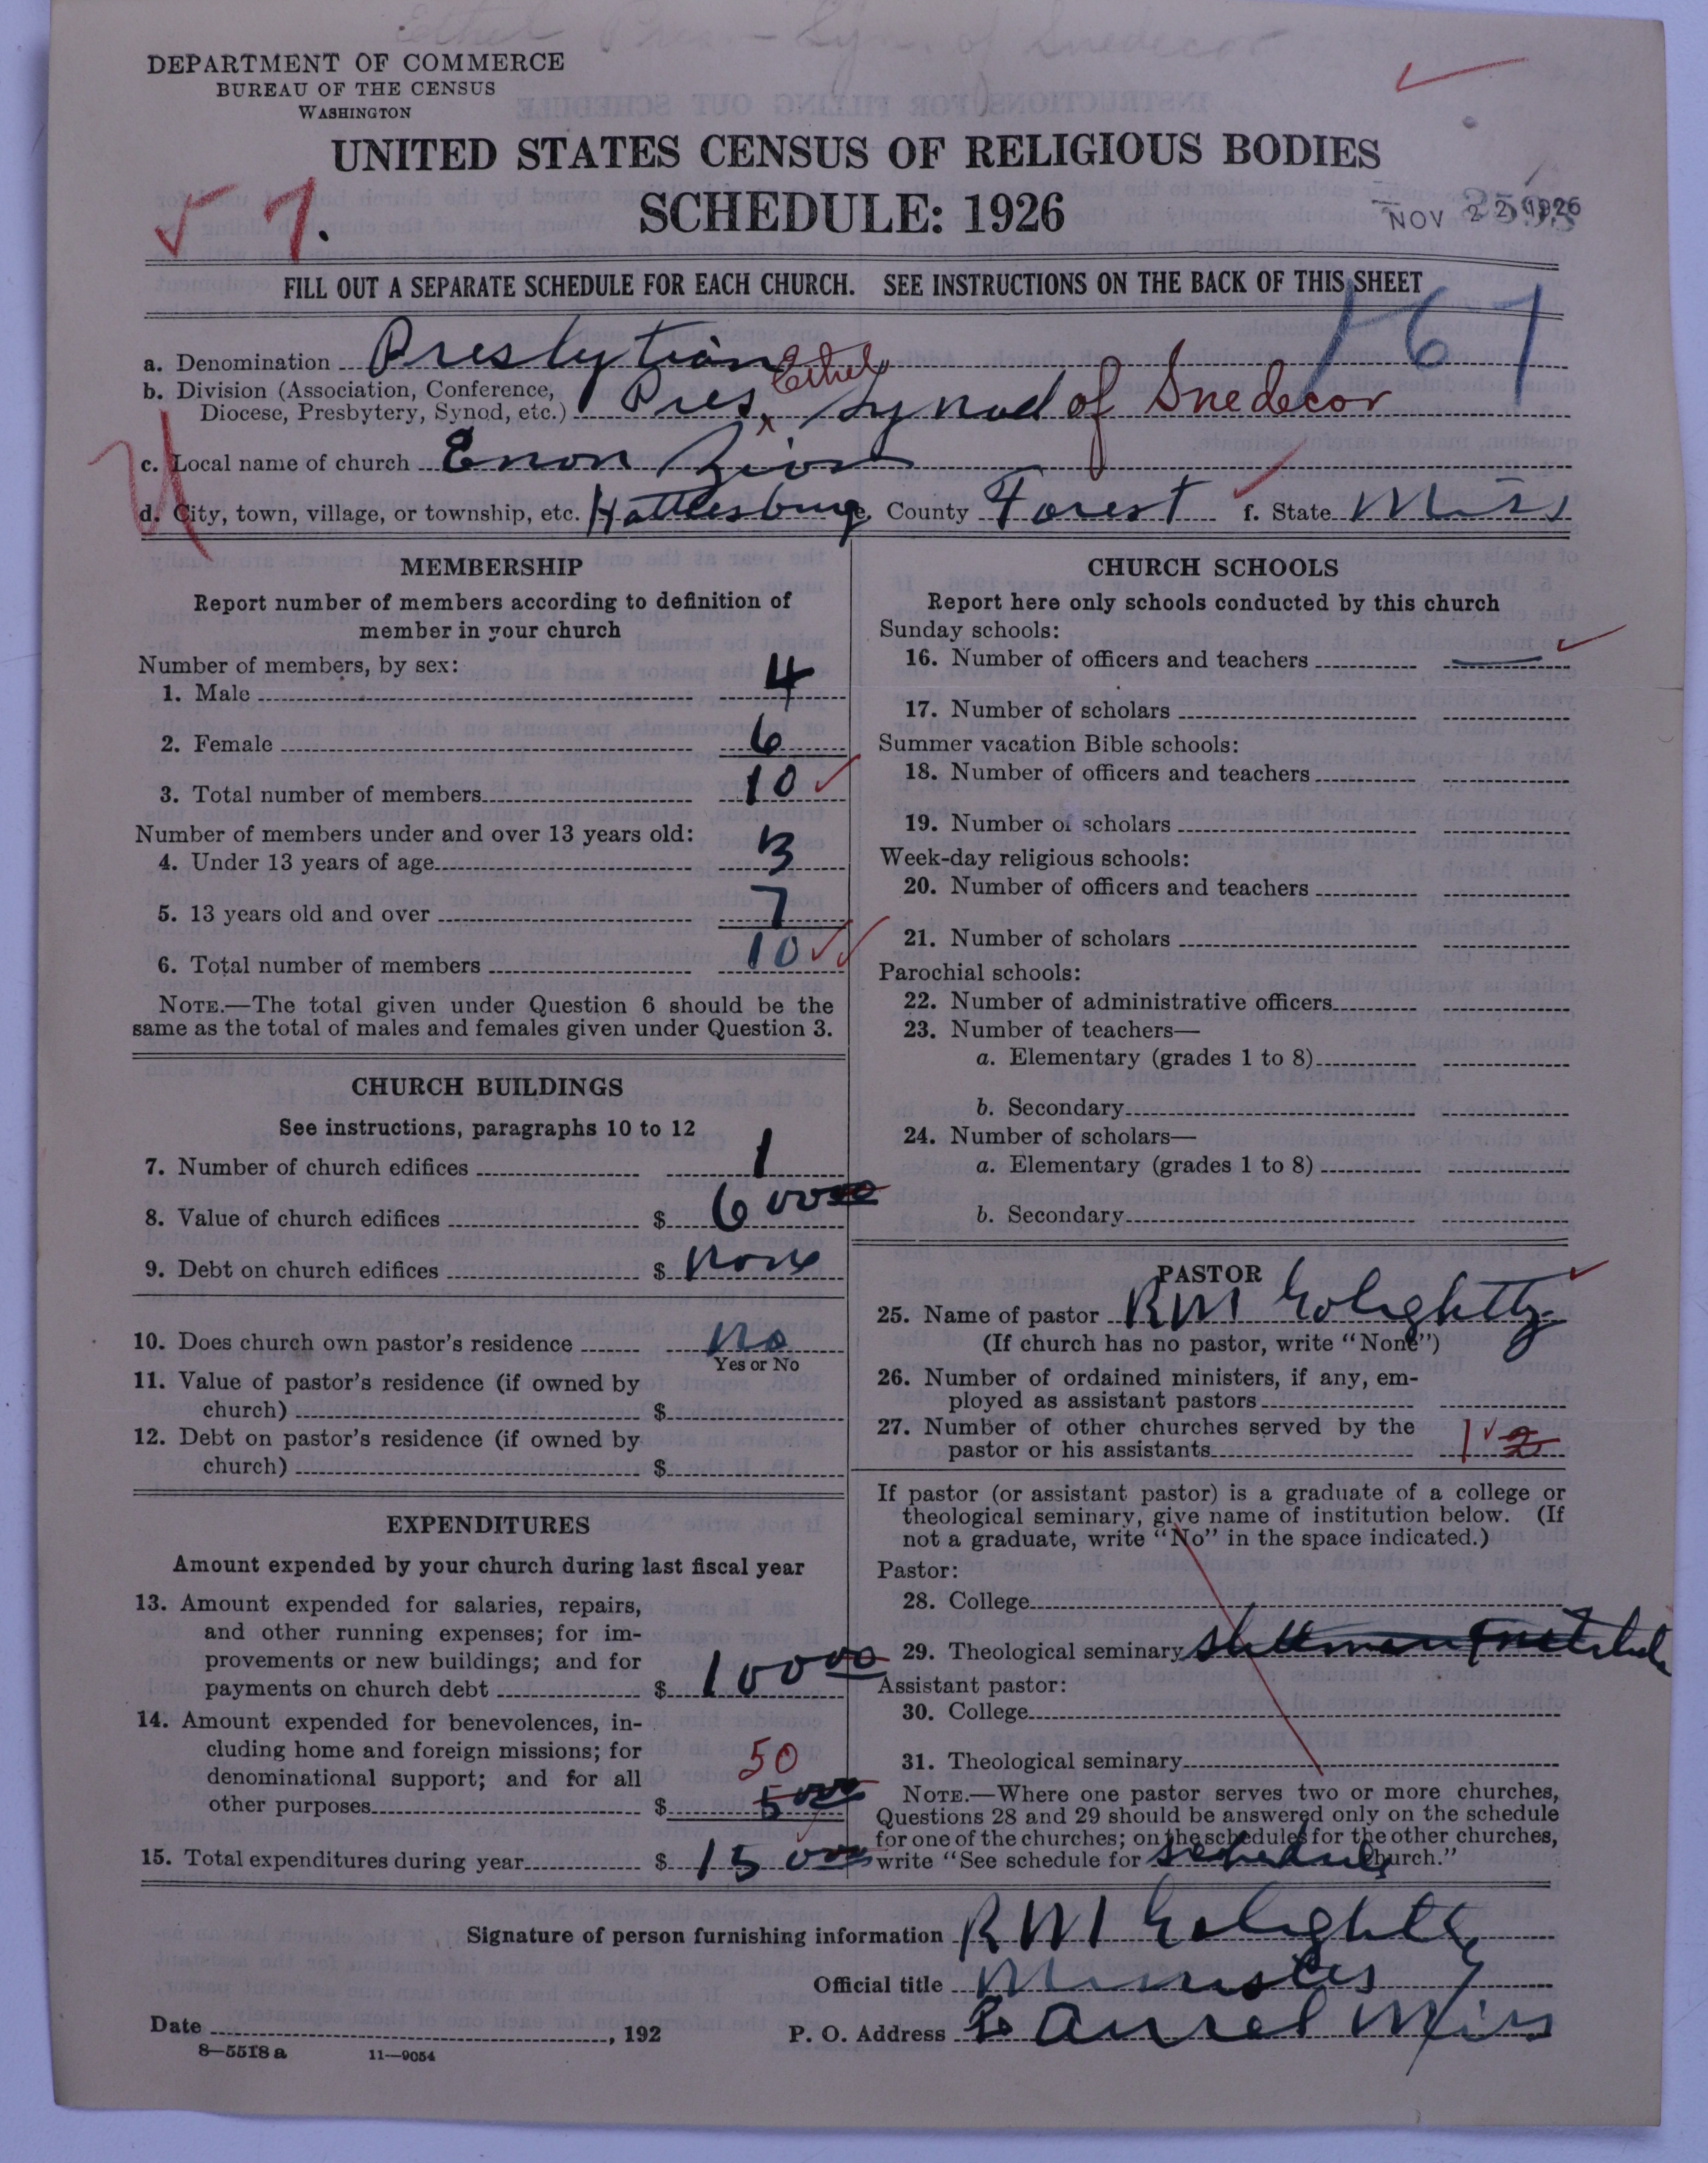 Ethel Pres - Syn. of Snedecor
DEPARTMENT OF COMMERCE
BUREAU OF THE CENSUS
WASHINGTON
UNITED STATES CENSUS OF RELIGIOUS BODIES
SCHEDULE: 1926
NOV 22 1926
FILL OUT A SEPARATE SCHEDULE FOR EACH CHURCH. SEE INSTRUCTIONS ON THE BACK OF THIS SHEET
167
a. Denomination Presbytrian
b. Division (Association, Conference, Diocese, Presbytery, Synod, etc.) Pres. Ethel Synod of Snedecor
c. Local name of church Enon Zion
d. City, town, village, or township, etc. Hattlesburg e. County Forest f. State Miss
MEMBERSHIP
Report number of members according to definition of
member in your church
Number of members, by sex:
1. Male 4
2. Female 6
3. Total number of members 10
Number of members under and over 13 years old:
4. Under 13 years of age 3
5. 13 years old and over 7
6. Total number of members 10
NOTE.—The total given under Question 6 should be the
same as the total of males and females given under Question 3.
CHURCH BUILDINGS
See instructions, paragraphs 10 to 12
7. Number of church edifices 1
8. Value of church edifices $ 60000
9. Debt on church edifices $ None
10. Does church own pastor's residence No
Yes or No
11. Value of pastor's residence (if owned by
church) $
12. Debt on pastor's residence (if owned by
church) $
EXPENDITURES
Amount expended by your church during last fiscal year
13. Amount expended for salaries, repairs,
and other running expenses; for im-
provements or new buildings; and for
payments on church debt $ 10000
14. Amount expended for benevolences, in-
cluding home and foreign missions; for
denominational support; and for all
50
other purposes $ 5000
15. Total expenditures during year $ 15000
CHURCH SCHOOLS
Report here only schools conducted by this church
Sunday schools:
16. Number of officers and teachers
17. Number of scholars
Summer vacation Bible schools:
18. Number of officers and teachers
19. Number of scholars
Week-day religious schools:
20. Number of officers and teachers
21. Number of scholars
Parochial schools:
22. Number of administrative officers
23. Number of teachers—
a. Elementary (grades 1 to 8)
b. Secondary
24. Number of scholars—
a. Elementary (grades 1 to 8)
b. Secondary
PASTOR
25. Name of pastor RM Golightly
(If church has no pastor, write "None")
26. Number of ordained ministers, if any, em-
ployed as assistant pastors
27. Number of other churches served by the
pastor or his assistants 1 2
If pastor (or assistant pastor) is a graduate of a college or
theological seminary, give name of institution below. (If
not a graduate, write "No" in the space indicated.)
Pastor:
28. College
29. Theological seminary Stillman Institute
Assistant pastor:
30. College
31. Theological seminary
NOTE.—Where one pastor serves two or more churches,
Questions 28 and 29 should be answered only on the schedule
for one of the churches; on the schedules for the other churches,
write "See schedule for schedule church."
Signature of person furnishing information RM Golightly
Official title Minister
Date , 192 P. O. Address Laurel Miss
8—5518 a 11—9054